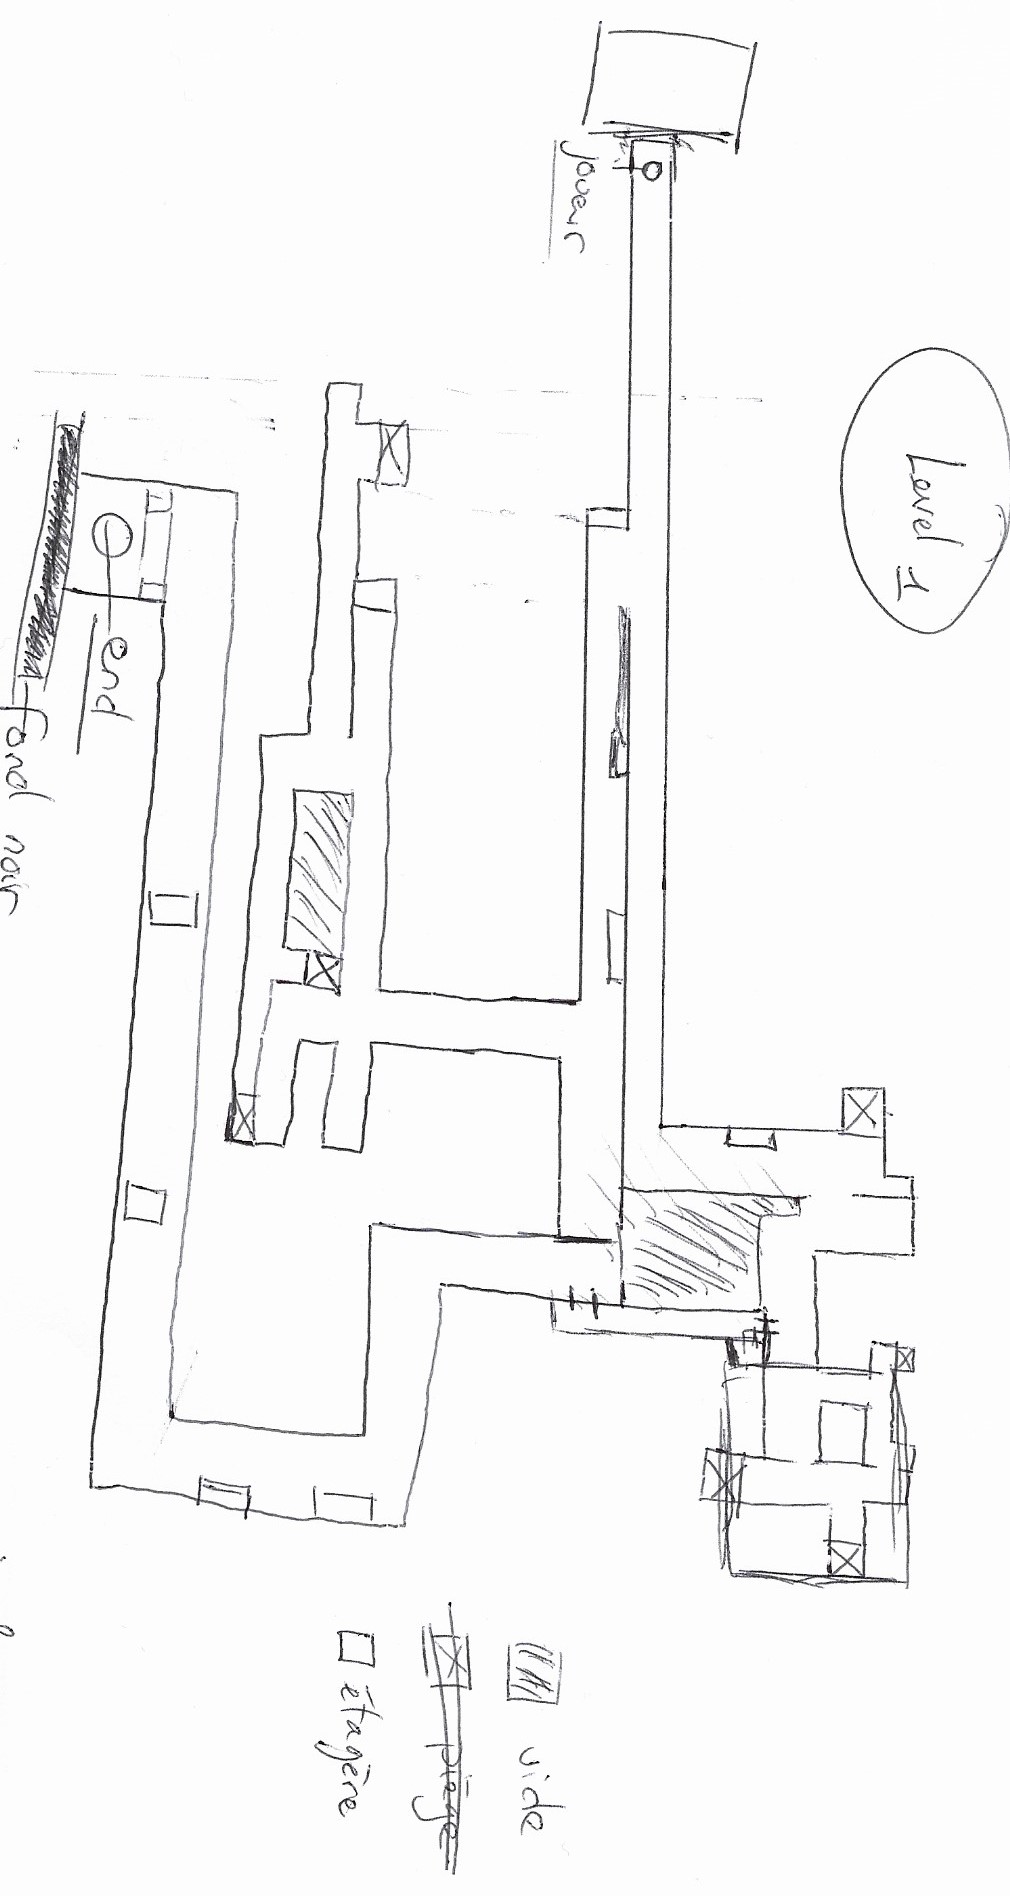 Level 1
joueur
vide
piège
étagère
end
fond noir